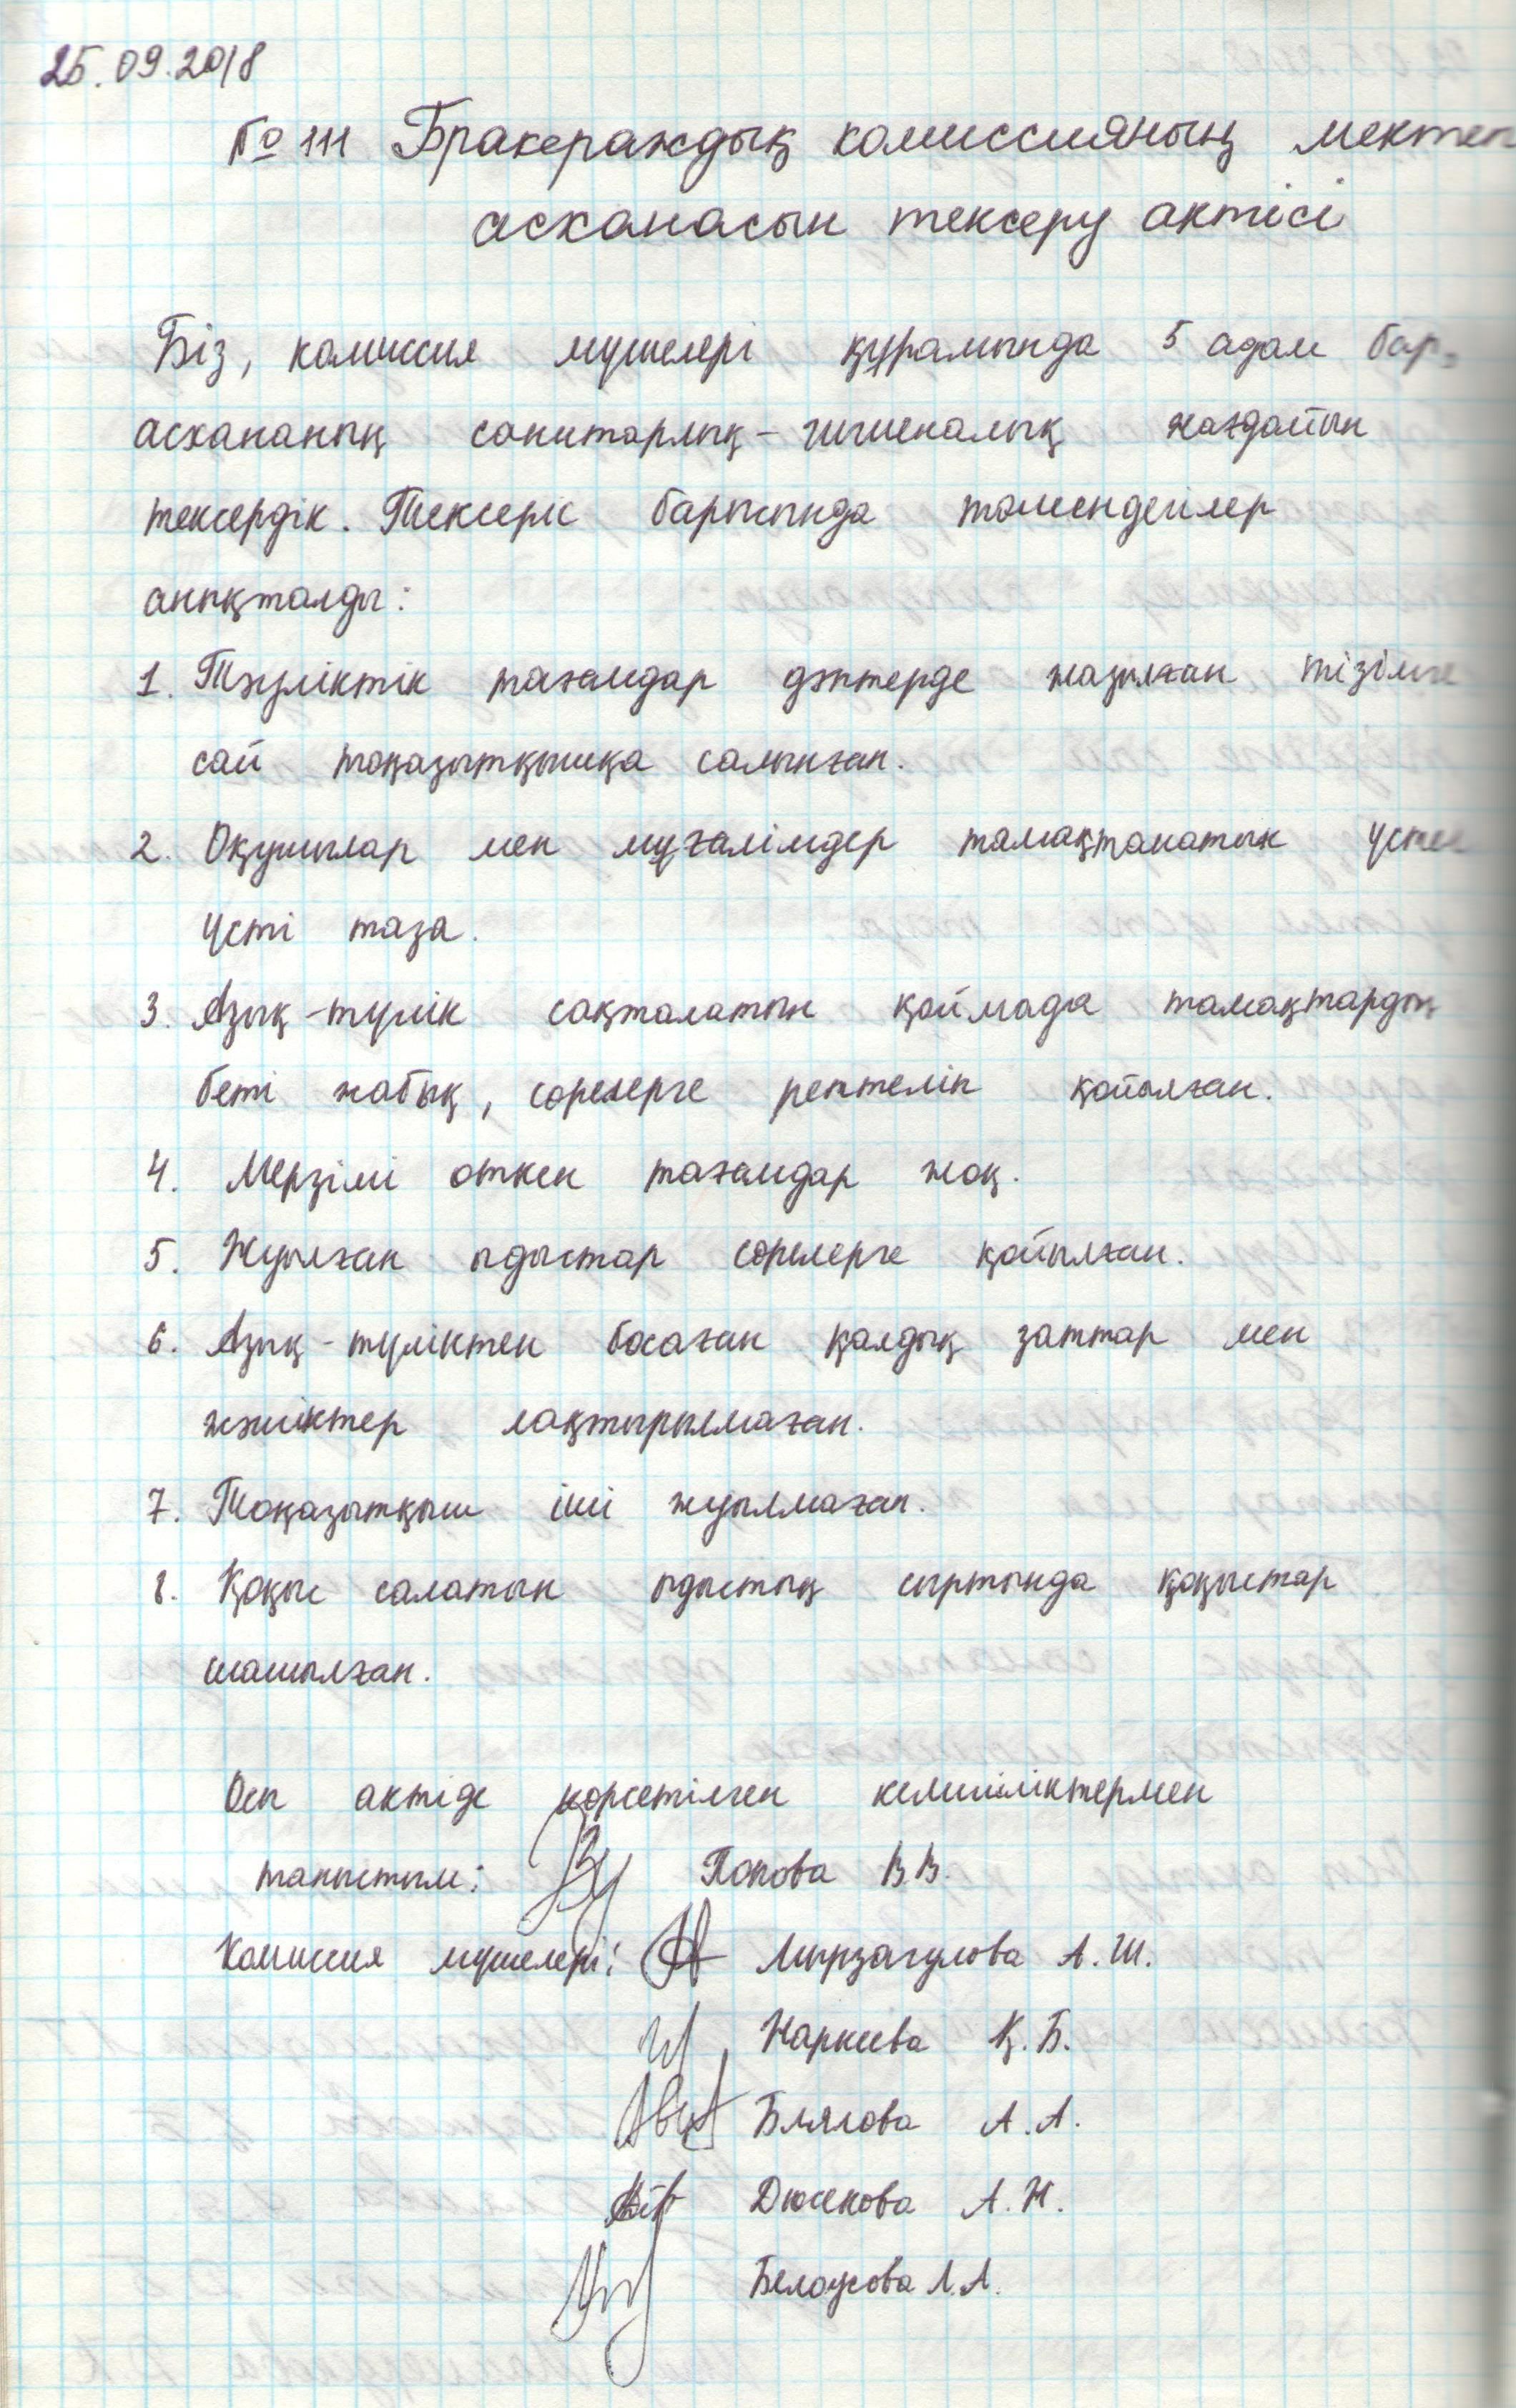 25.09.2018
№ 111 Бракераждық комиссияның мектеп
асханасын тексеру актісі
Біз, комиссия мүшелері құрамында 5 адам бар,
асхананың санитарлық-гигиеналық жағдайын
тексердік. Тексеріс барысында төмендегілер
анықталды:
1. Тәуліктік тағамдар дәптерде жазылған тізімге
сай тоңазытқышқа салынған.
2. Оқушылар мен мұғалімдер тамақтанатын үстел
үсті таза.
3. Азық-түлік сақталатын қоймада тамақтардың
беті жабық, сөрелерге реттеліп қойылған.
4. Мерзімі өткен тағамдар жоқ.
5. Жуылған ыдыстар сөрелерге қойылған.
6. Азық-түліктен босаған қалдық заттар мен
жәшіктер лақтырылмаған.
7. Тоңазытқыш іші жуылмаған.
8. Қоқыс салатын ыдыстың сыртында қоқыстар
шашылған.
Осы актіде көрсетілген кемшіліктермен
таныстым: Попова В.В.
Комиссия мүшелері: Мырзагулова А.Ш.
Наркеева Қ.Б.
Блялова А.А.
Дюсенова А.Н.
Белоусова Л.А.